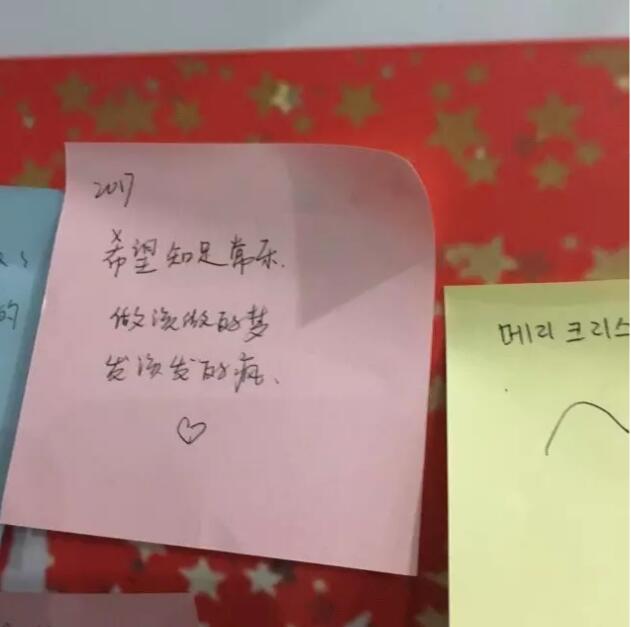 2017
希望知足常乐.
做该做的梦
发该发的疯、
的
메리 크리스